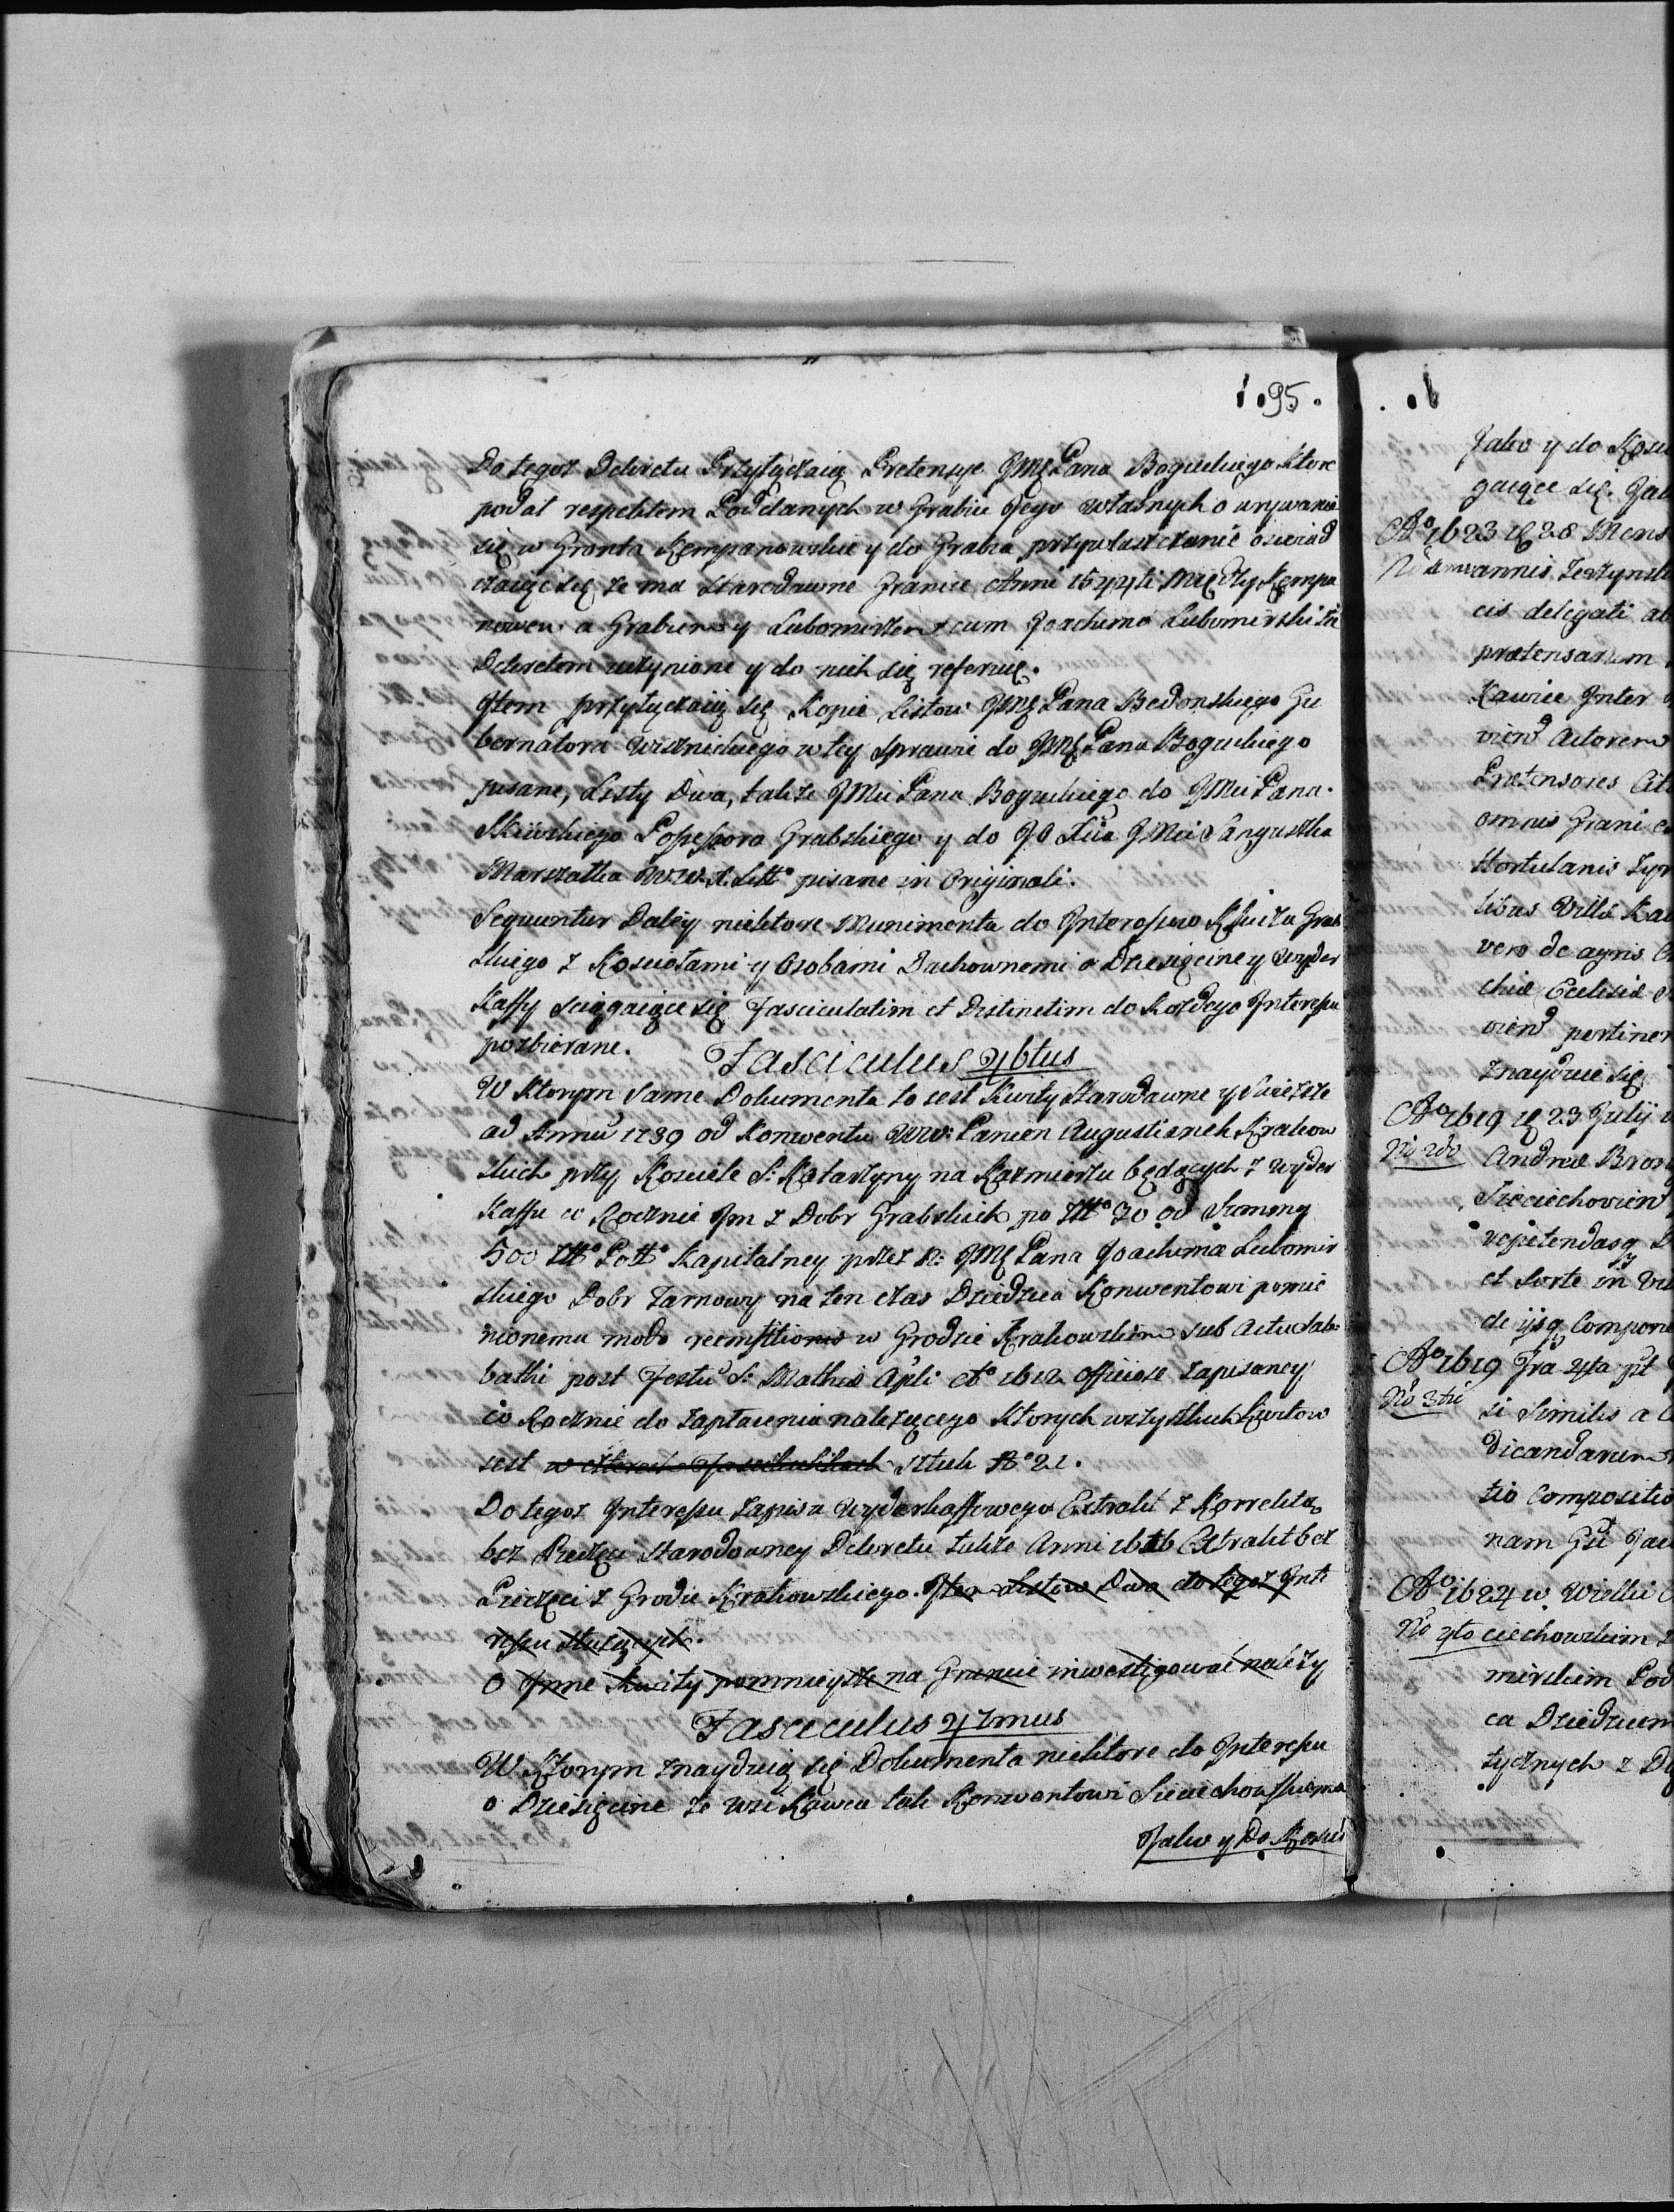 195.
Do tegoz Dekretu Przyłączaią Pretensye JMć Pana Boguckiego ktore
podał respektem Poddanych w Grabiu Jego własnych o urywanie
się w Gronta Kempanowskie y do Grabia przywłaszczanie oswiad
czaiąc się ze ma starodawne Granice Anni 1544ti Między Kempa
nowem a Grabiem y Lubomirzem cum Joachimo Lubomirski za
Dekretem uczynione y do nich się referuie.
Item przyłączaią się Kopie Listow JMć Pana Bedonskiego Gu
bernatora Wisnickiego w tey sprawie do JMć Pana Boguckiego
pisane, Listy Dwa, takze JMci Pana Boguckiego do JMci Pana
Possessora Grabskiego y do JO Xcia JMci Sanguszka
Marszałka W.W.X.Litto pisane in Originali.
Sequuntur Daley niektore Munimenta do Interessow Klucza Grab
skiego z Kosciołami y Osobami Duchownemi o Dziesięcine y Wyder
kaffy sciągaiące się Fasciculatim et Distinctim do kozdego Interessu
pozbierane.
Fasciculus 46tus
W Ktorym same Dokumenta to iest Kwity Starodawne y swiezsze
ad Annũ 1739 od Konwentu WW: Panien Augustianek Krakow
skich przy Kosciele S: Katarzyny na Kazmierzu będących z wyder
kaffu co Rocznie Im z Dobr Grabskich po Złło 30 od Summy
500 Złło Pollo Kapitalney przez N: JMć Pana Joachima Lubomir
skiego Dobr Tarnowy na ten czas Dziedzica Konwentowi pomie
nionemu modo reemptionis w Grodzie Krakowskim sub Actu Sab=
bathi post Festũ S: Mathiæ Apli Ao 1612 officiose zapisaney
co Rocznie do zapłacenia nalezącego ktorych wszystkich kwitow
iest w czterech Fascikulikach sztuk No 21.
Do tegoz Interessu Zapisu Wyderkaffowego Extrakt z Korrektą
bez Pieczęci Starodawney Dekretu takze Anni 1616 Extrakt bez
Pieczęci z Grodu Krakowskiego. Item Listow Dwa do tegoz Inte
ressu słuzących.
O Inne Kwity pomnieysze na Gruncie inwestigować nalezy
Fasciculus 47mus
W Ktorym znayduią się Dokumenta niektore do Interessu
o Dziesięcine ze wsi Kawca tak Konwentowi Sieciechowskiemu
Jako y Do Kosci
Jako y do Kosci
gaiące się. Jak
Ao 1623 28 Mens
annis Zerzynski
cis delegati ab
prætensarum
Kawice Inter
vien Actorem
Prætensores Cit
omnis Grani
Hortulanis
tibus Villæ Kaw
vero de agris
chiæ Ecclesiæ
vien pertinen
Znayduie się
Ao 1619 23 Julij
No 2do Andreæ Bron
Sieciechovien
repetendasq
et sorte in
de ijsq Compone
Ao 1619 Fra 4ta pt
No 3tiũ si Similis a
dicandarum
tio Compositio
nam
Ao 1624 w Wielki
No 4to ciechowskim
mirskim Pod
ca Dziedzicem
tycznych z